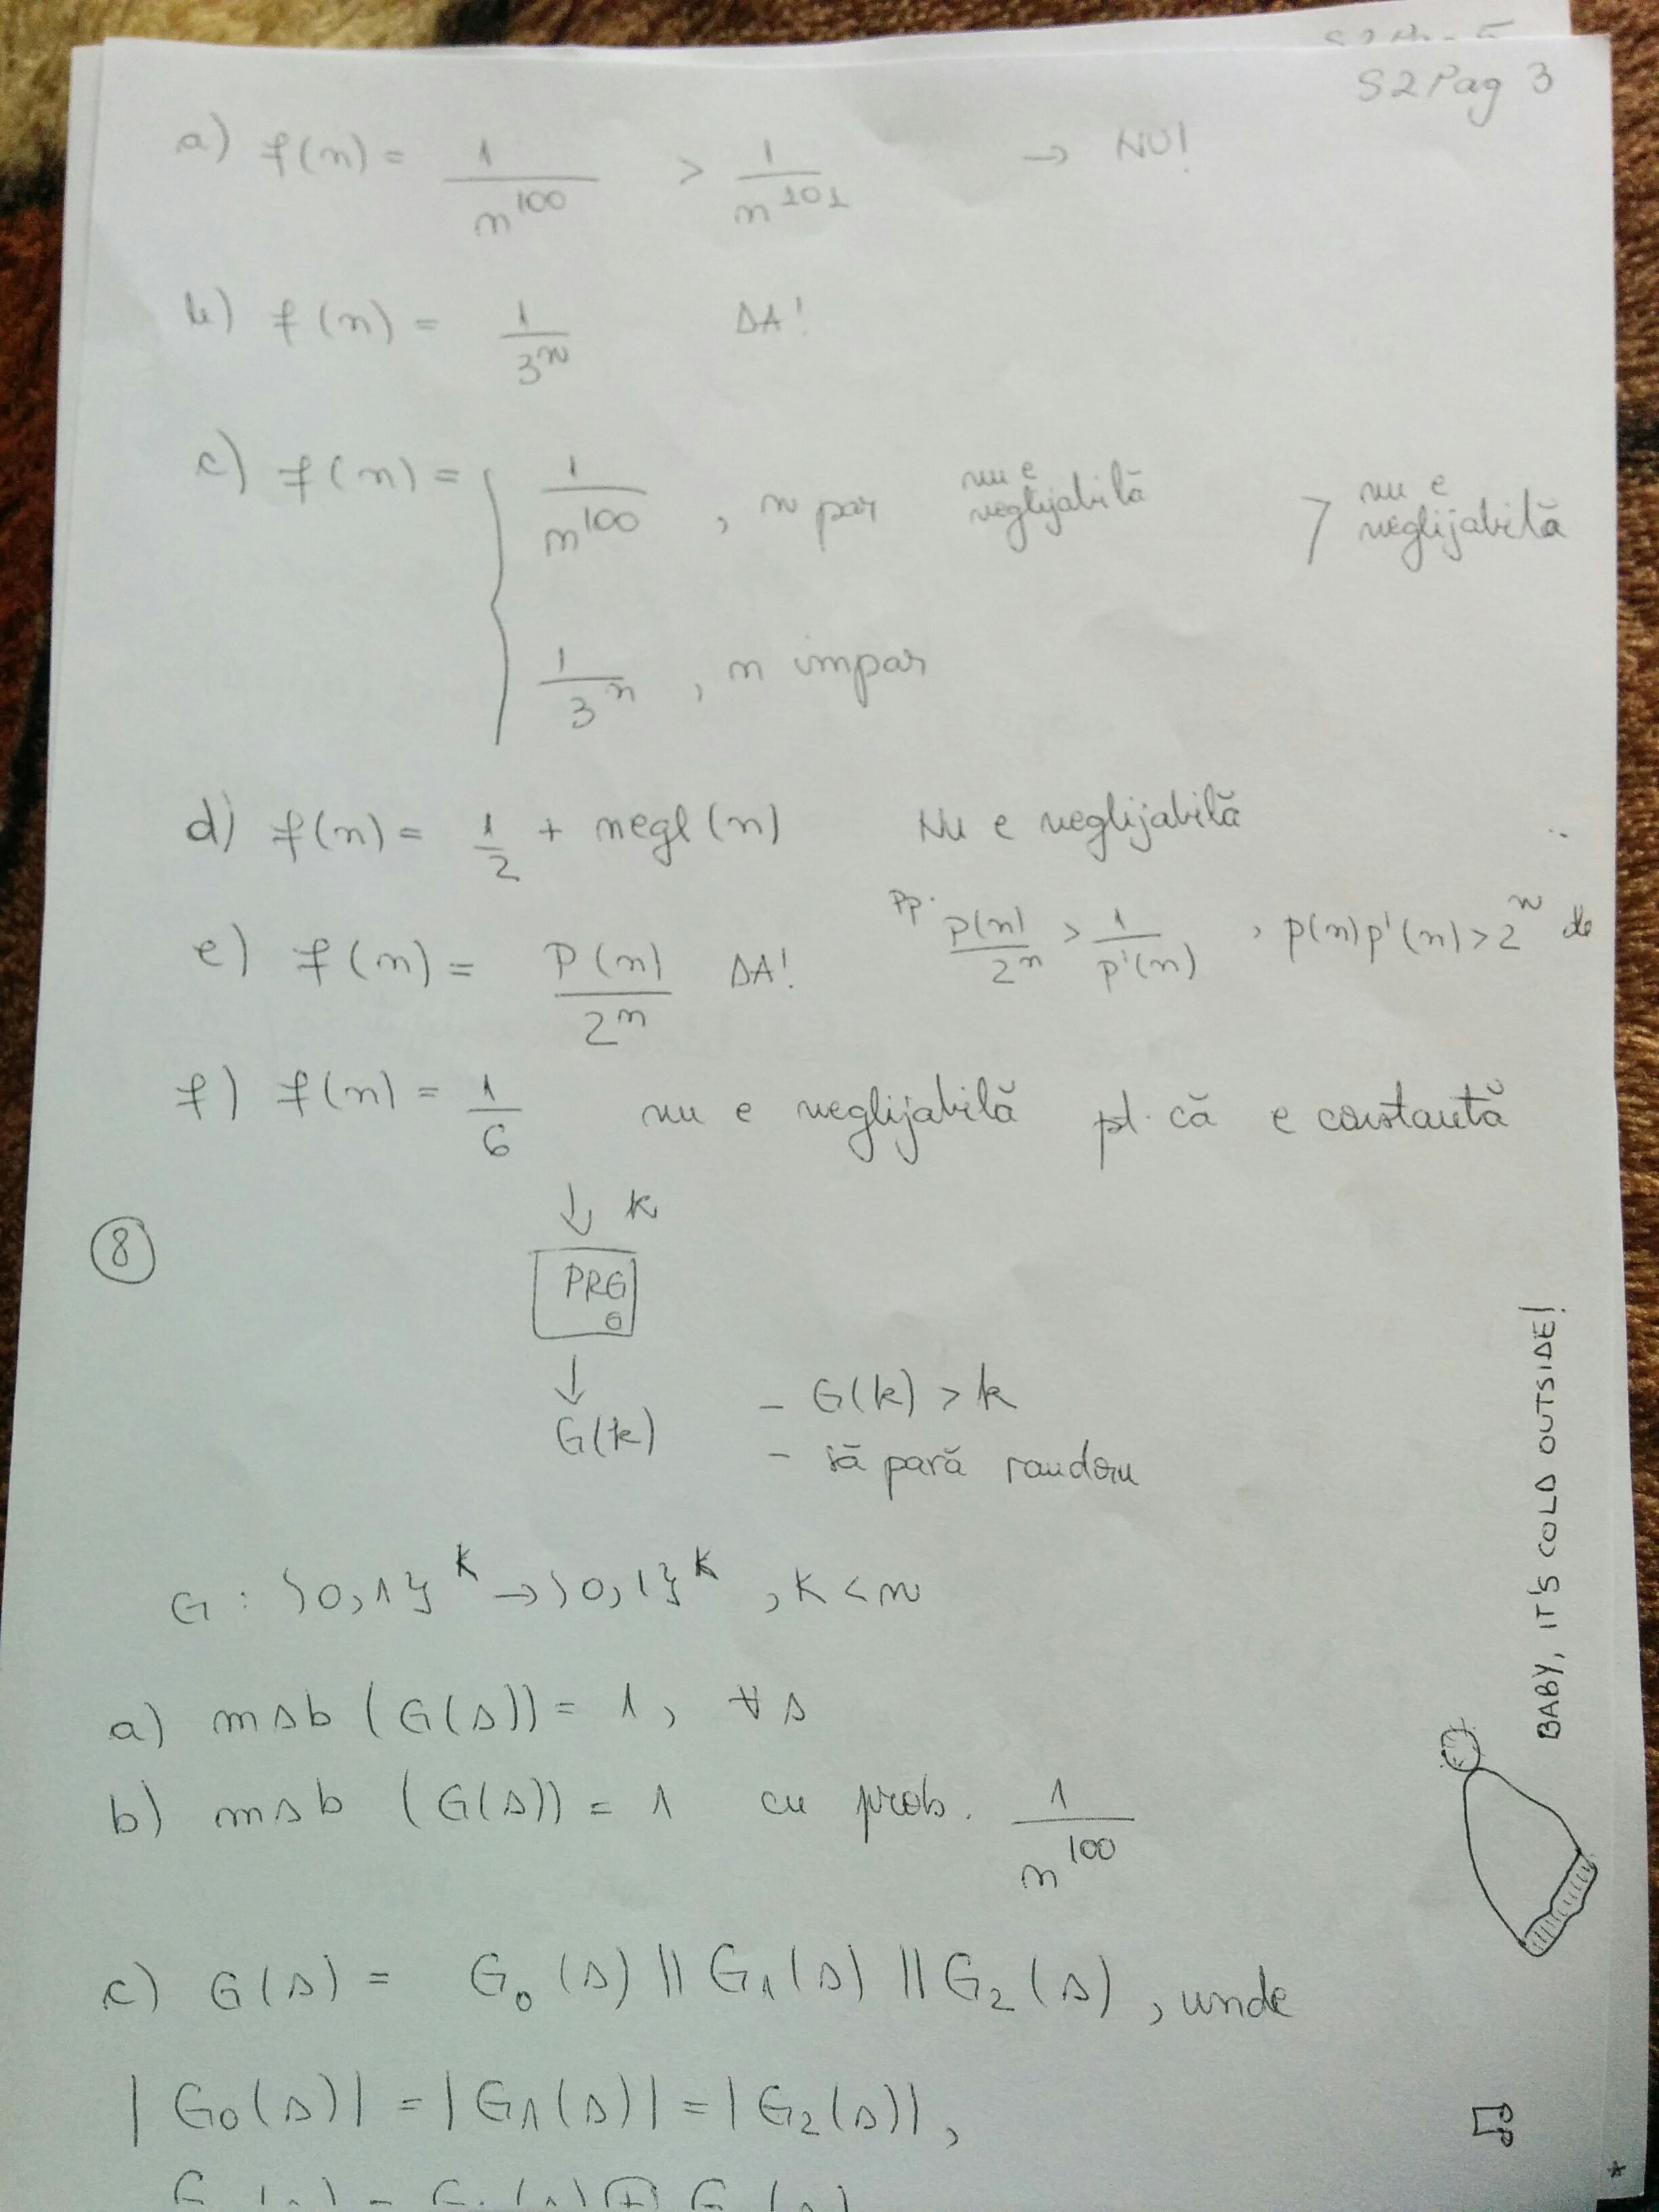 S2 Pag 3
a) f(n) = 1/n^100 > 1/n^101 → NU!
b) f(n) = 1/3^n DA!
c) f(n) = { 1/n^100 , n par nu e neglijabilă > nu e neglijabilă
1/3^n , n impar
d) f(n) = 1/2 + negl(n) Nu e neglijabilă
e) f(n) = p(n)/2^n DA! Pp. p(n)/2^n > 1/p'(n) , p(n)p'(n) > 2^n
f) f(n) = 1/6 nu e neglijabilă pt. că e constantă
⑧ ↓ k
PRG
↓
G(k) - G(k) > k
- să pară random
G : {0,1}^k → {0,1}^k , k < n
a) msb (G(s)) = 1, ∀ s
b) msb (G(s)) = 1 cu prob. 1/n^100
c) G(s) = G₀(s) || G₁(s) || G₂(s) , unde
|G₀(s)| = |G₁(s)| = |G₂(s)|,
BABY, IT'S COLD OUTSIDE!